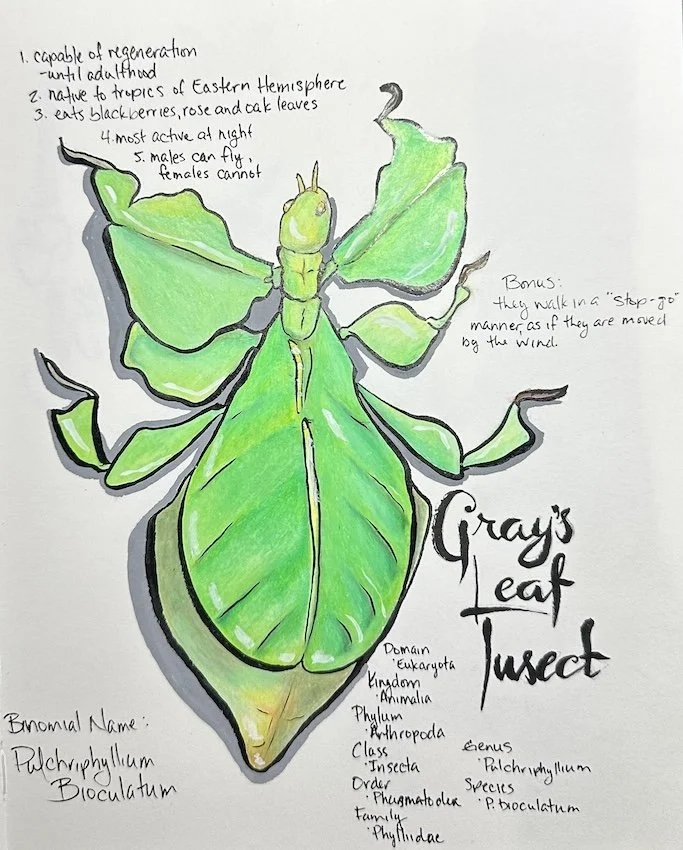 1. capable of regeneration
-until adulthood
2. native to tropics of Eastern Hemisphere
3. eats blackberries, rose and oak leaves
4. most active at night
5. males can fly,
females cannot
Bonus:
they walk in a "stop-go"
manner, as if they are moved
by the wind.
Gray's
Leaf
Insect
Domain
·Eukaryota
Kingdom
·Animalia
Phylum
·Arthropoda
Class
·Insecta
Order
·Phasmatodea
Family
·Phylliidae
Genus
·Pulchriphyllium
Species
·P. bioculatum
Binomial Name:
Pulchriphyllium
Bioculatum